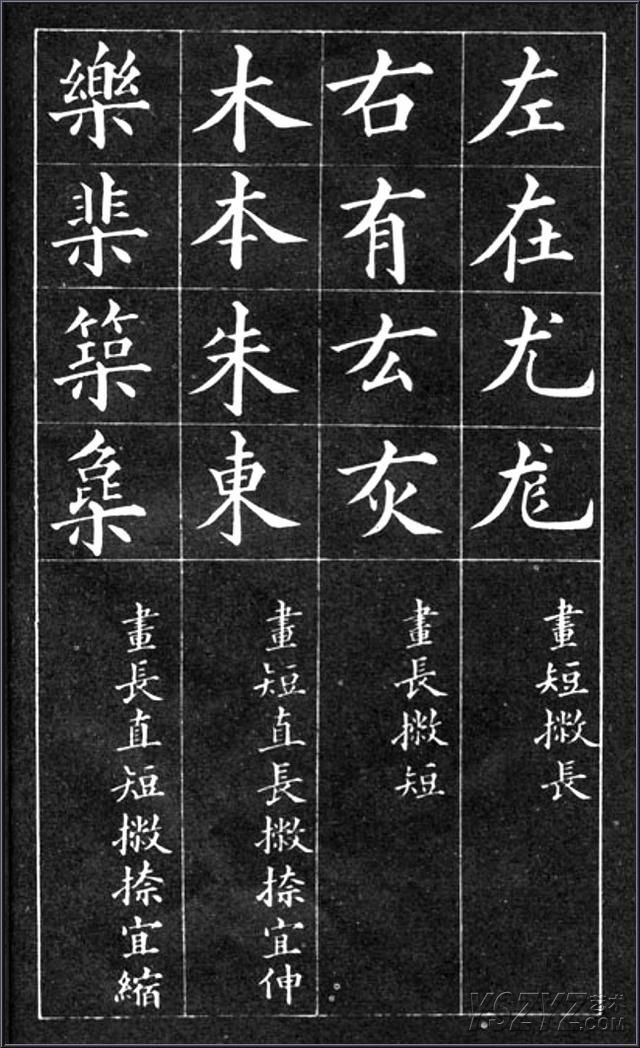 左在尤尨
畫短撇長
右有厷灰
畫長撇短
木本朱東
畫短直長撇捺宜伸
樂棐築
畫長直短撇捺宜縮
艺术
.COM